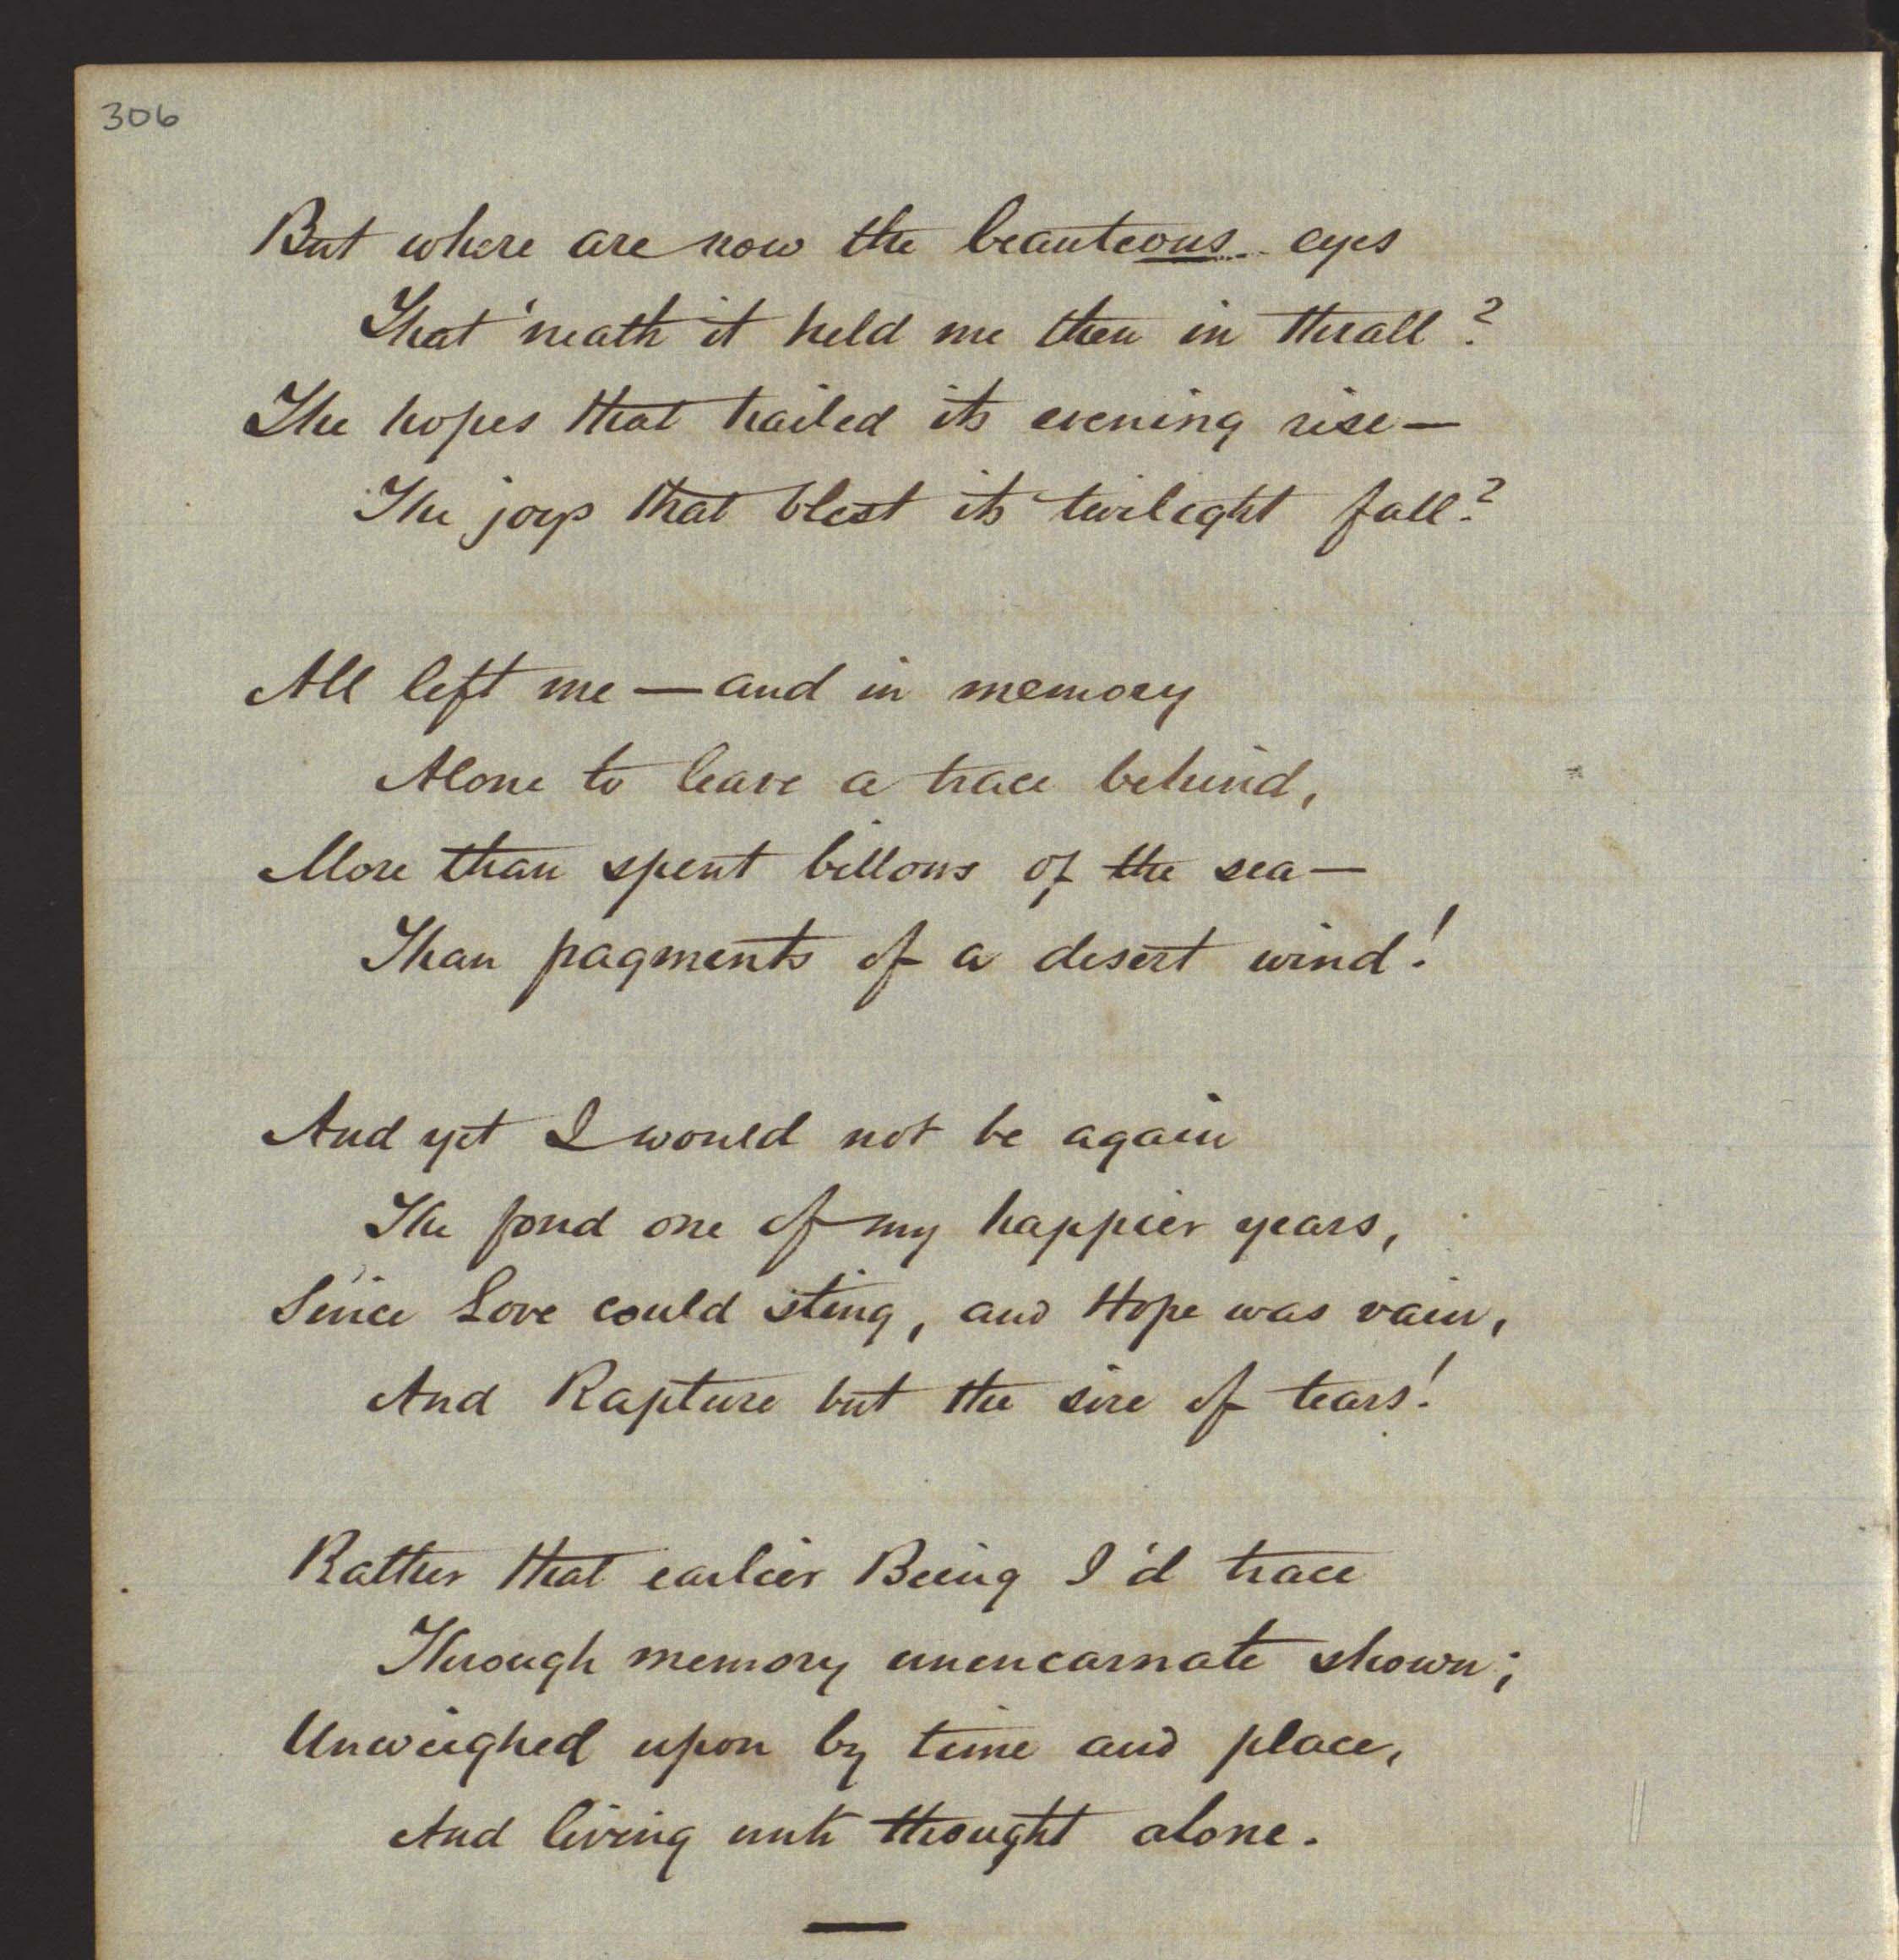 306
But where are now the beauteous eyes
That 'neath it held me then in thrall?
The hopes that hailed its evening rise—
The joys that blest its twilight fall?
All left me — and in memory
Alone to leave a trace behind,
More than spent billows of the sea—
Than fragments of a desert wind!
And yet I would not be again
The fond one of my happier years,
Since Love could sting, and Hope was vain,
And Rapture but the sire of tears!
Rather that earlier Being I'd trace
Through memory unencarnate shown;
Unweighed upon by time and place,
And living with thought alone.